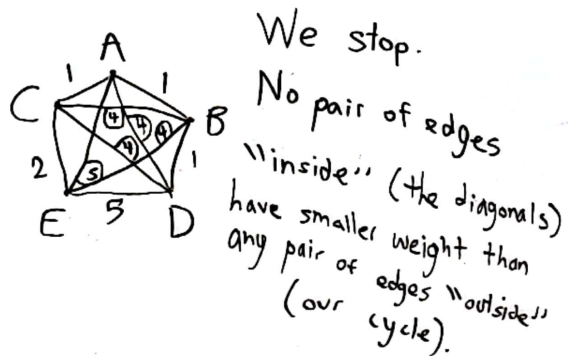 A
1
1
C
B
4
4
4
4
5
2
1
E
5
D
We stop.
No pair of edges
"inside" (the diagonals)
have smaller weight than
any pair of edges "outside"
(our cycle).